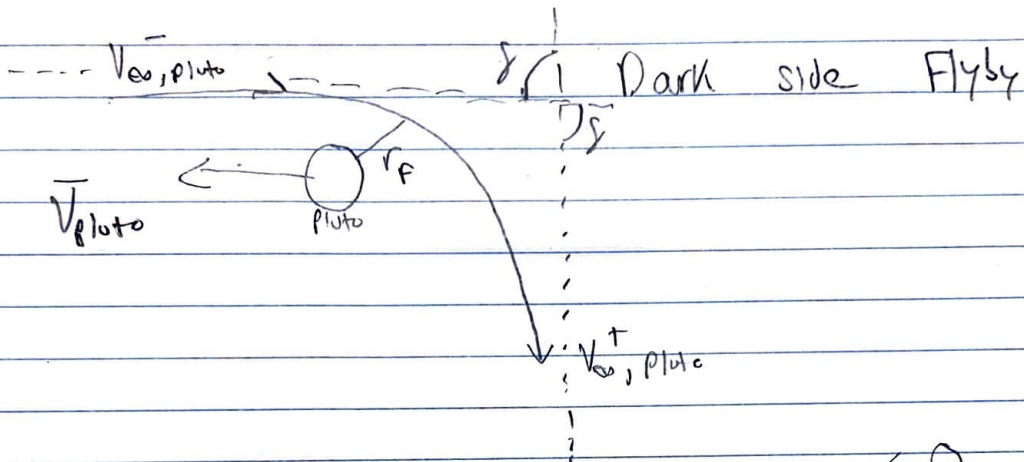 V̄∞,pluto γ Dark side Flyby
δ
r_F
V̄pluto pluto
V∞⁺, Pluto